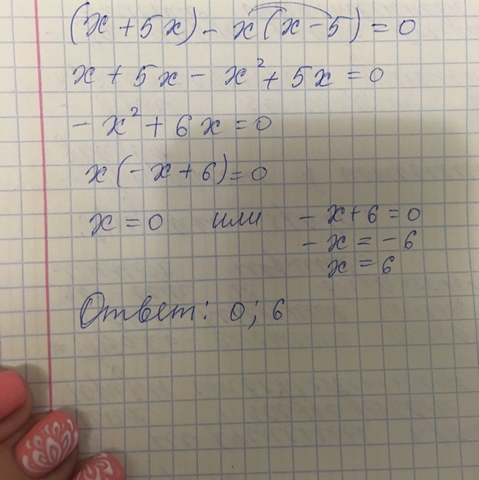 (x + 5x) - x(x - 5) = 0
x + 5x - x² + 5x = 0
- x² + 6x = 0
x(-x + 6) = 0
x = 0 или - x + 6 = 0
- x = - 6
x = 6
Ответ: 0; 6